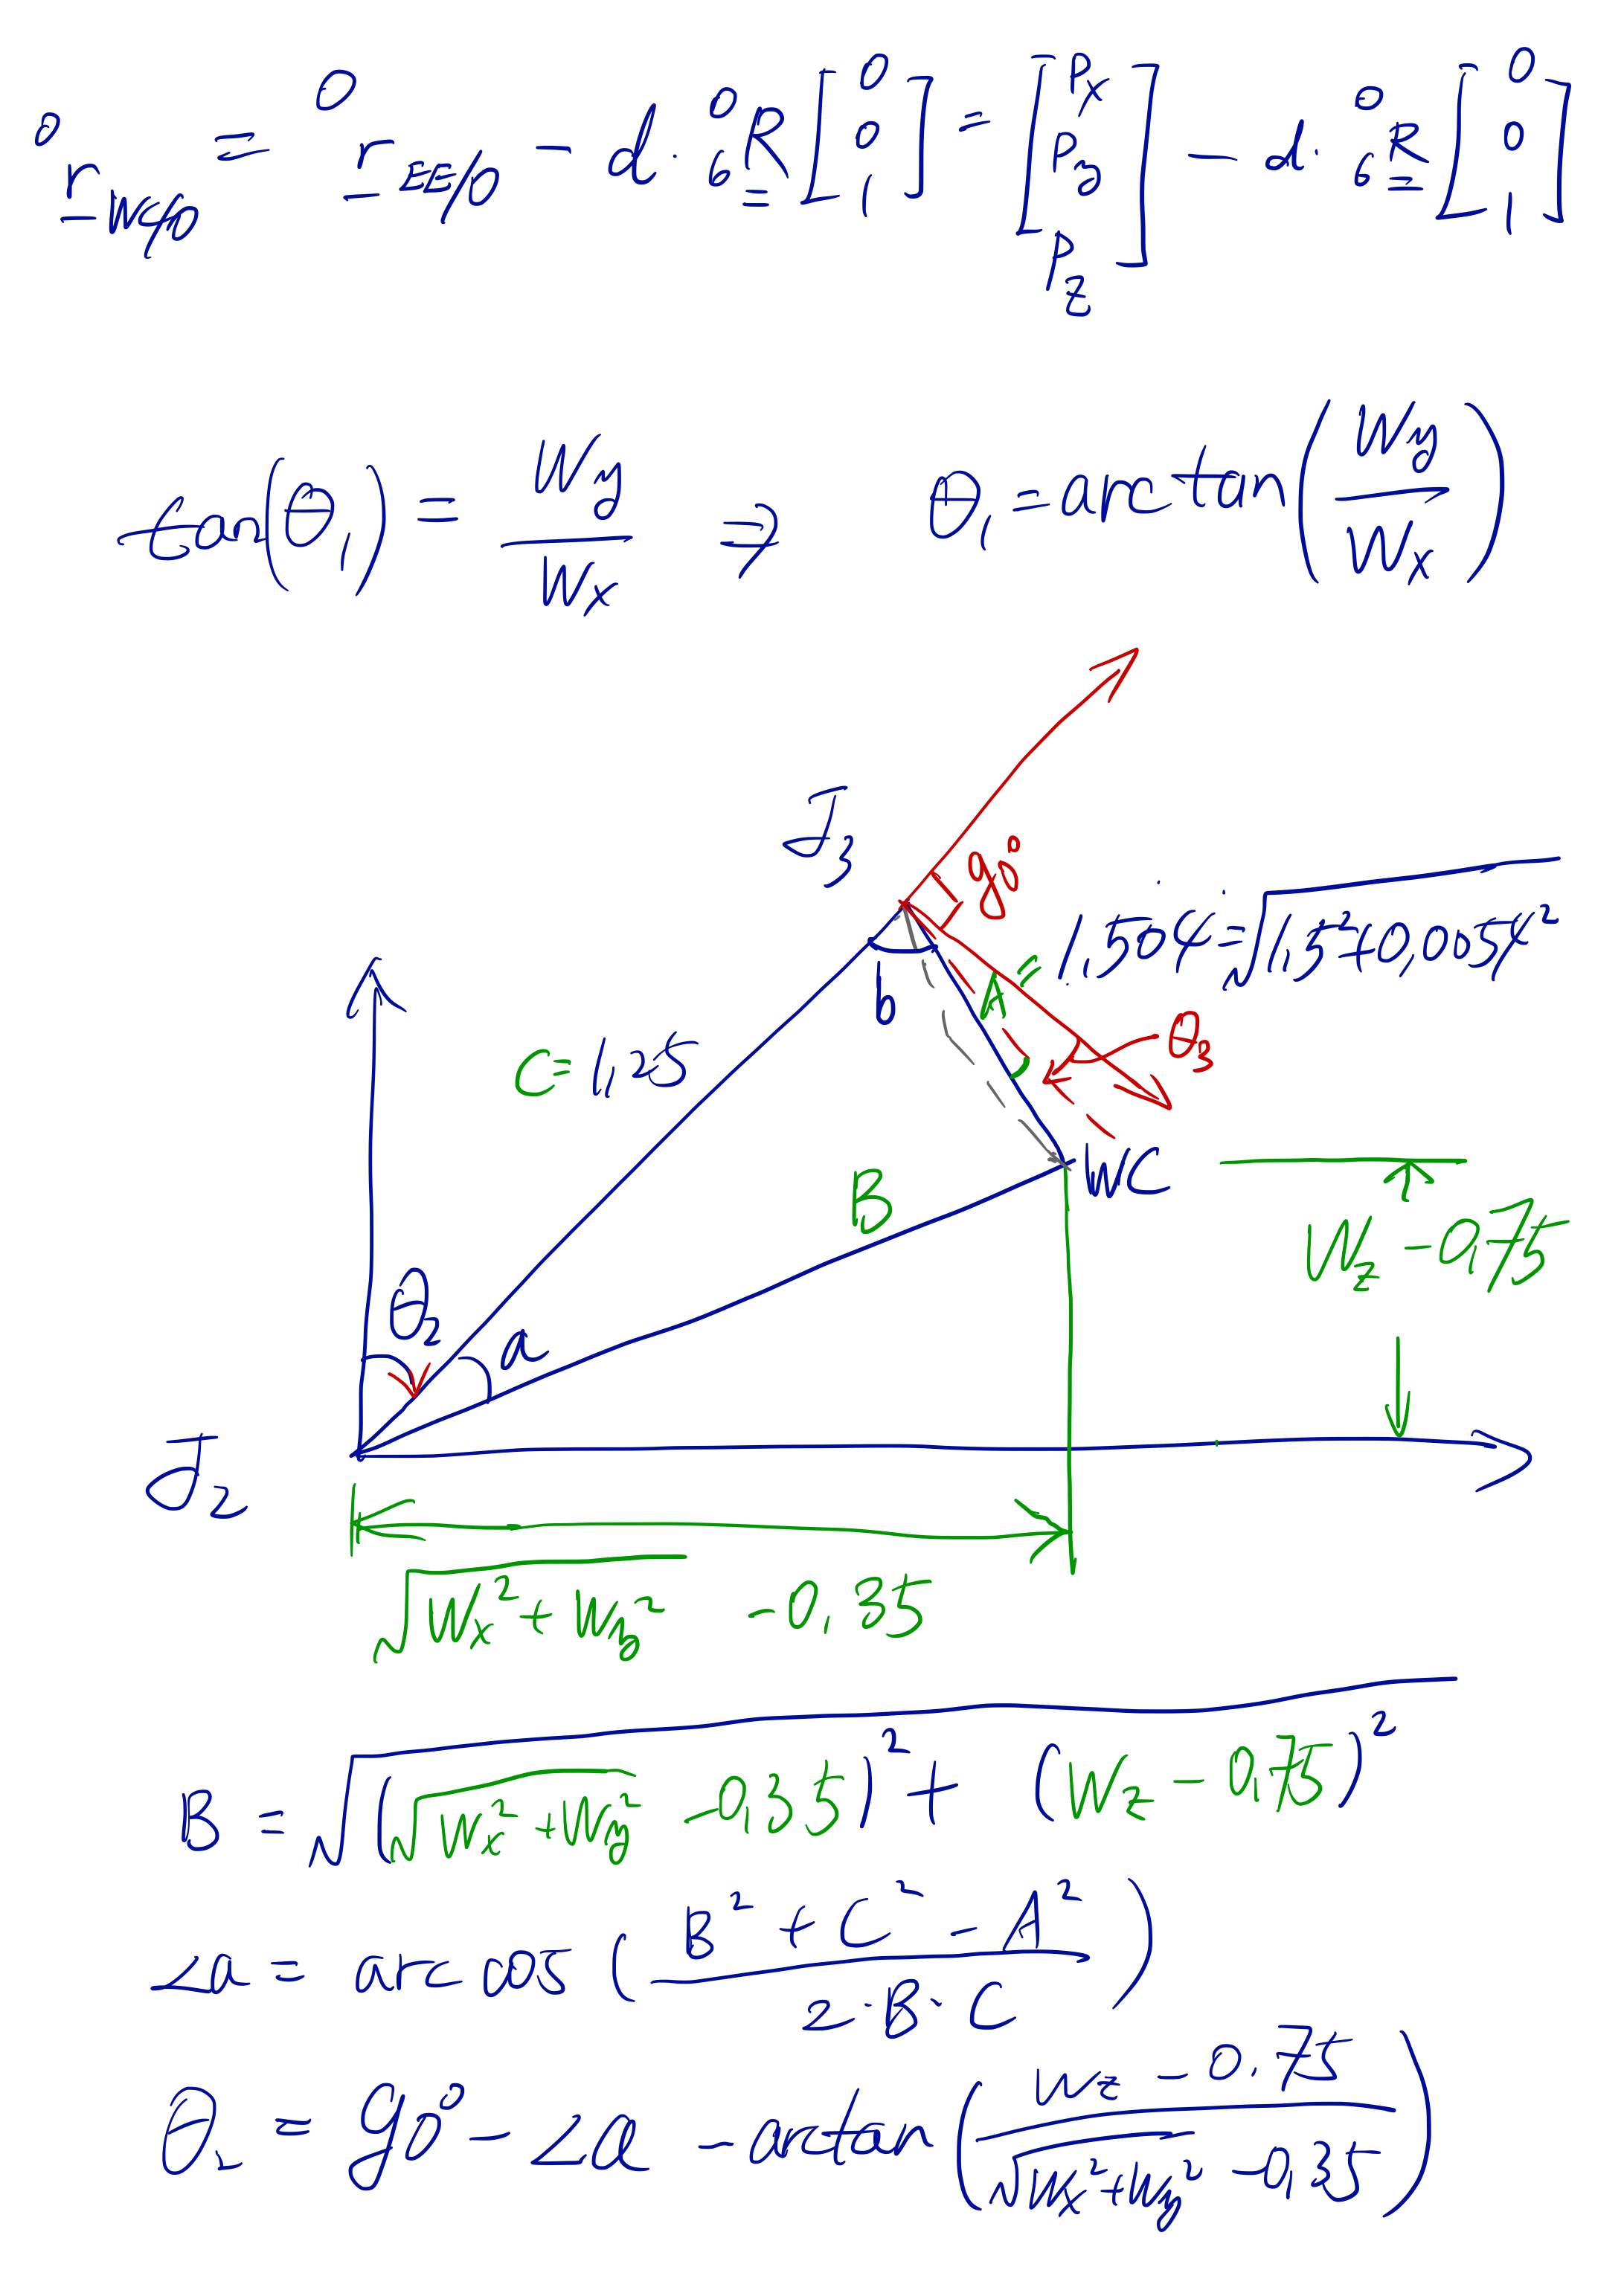 ⁰r_WC/0 = ⁰r_EE/0 − d · ⁰₆R [0 0 1] = [Px Py Pz] − d · ⁰₆R [0 0 1]
tan(θ₁) = Wy / Wx ⇒ θ₁ = arctan(Wy / Wx)
J₃
90°
A = 1,504 = √(1,5² + 0,0054²)
b
θ₃
C = 1,25
WC
B
Wz − 0,75
θ₂
a
J₂
√(Wx² + Wy²) − 0,35
B = √((√(Wx² + Wy²) − 0,35)² + (Wz − 0,75)²)
∠a = arc cos (B² + C² − A² / 2 · B · C)
θ₂ = 90° − ∠a − arctan(Wz − 0.75 / √(Wx² + Wy²) − 0,35)